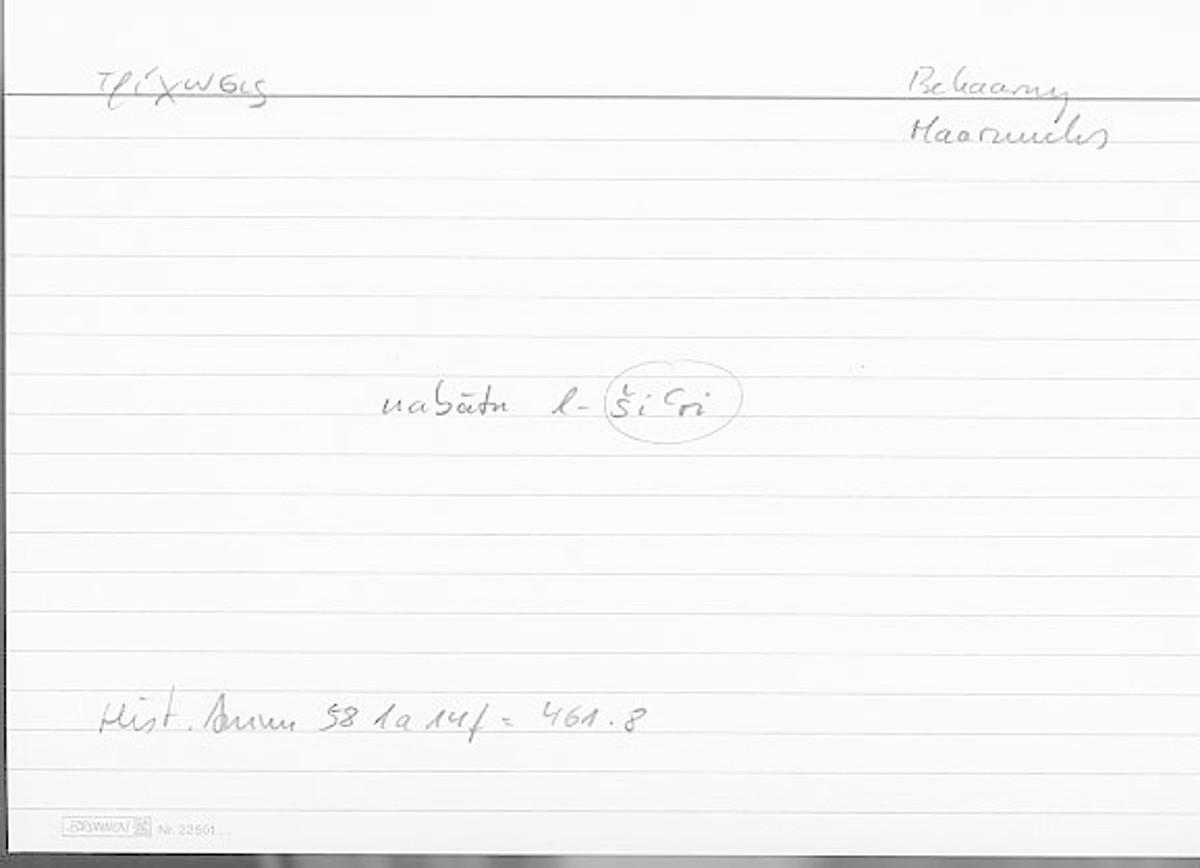 τρίχωσις
Behaarung
Haarwuchs
nabātu l-šiʿri
Hist. Anim 58 1a 14f = 461.8
BRUNNEN Nr. 22501